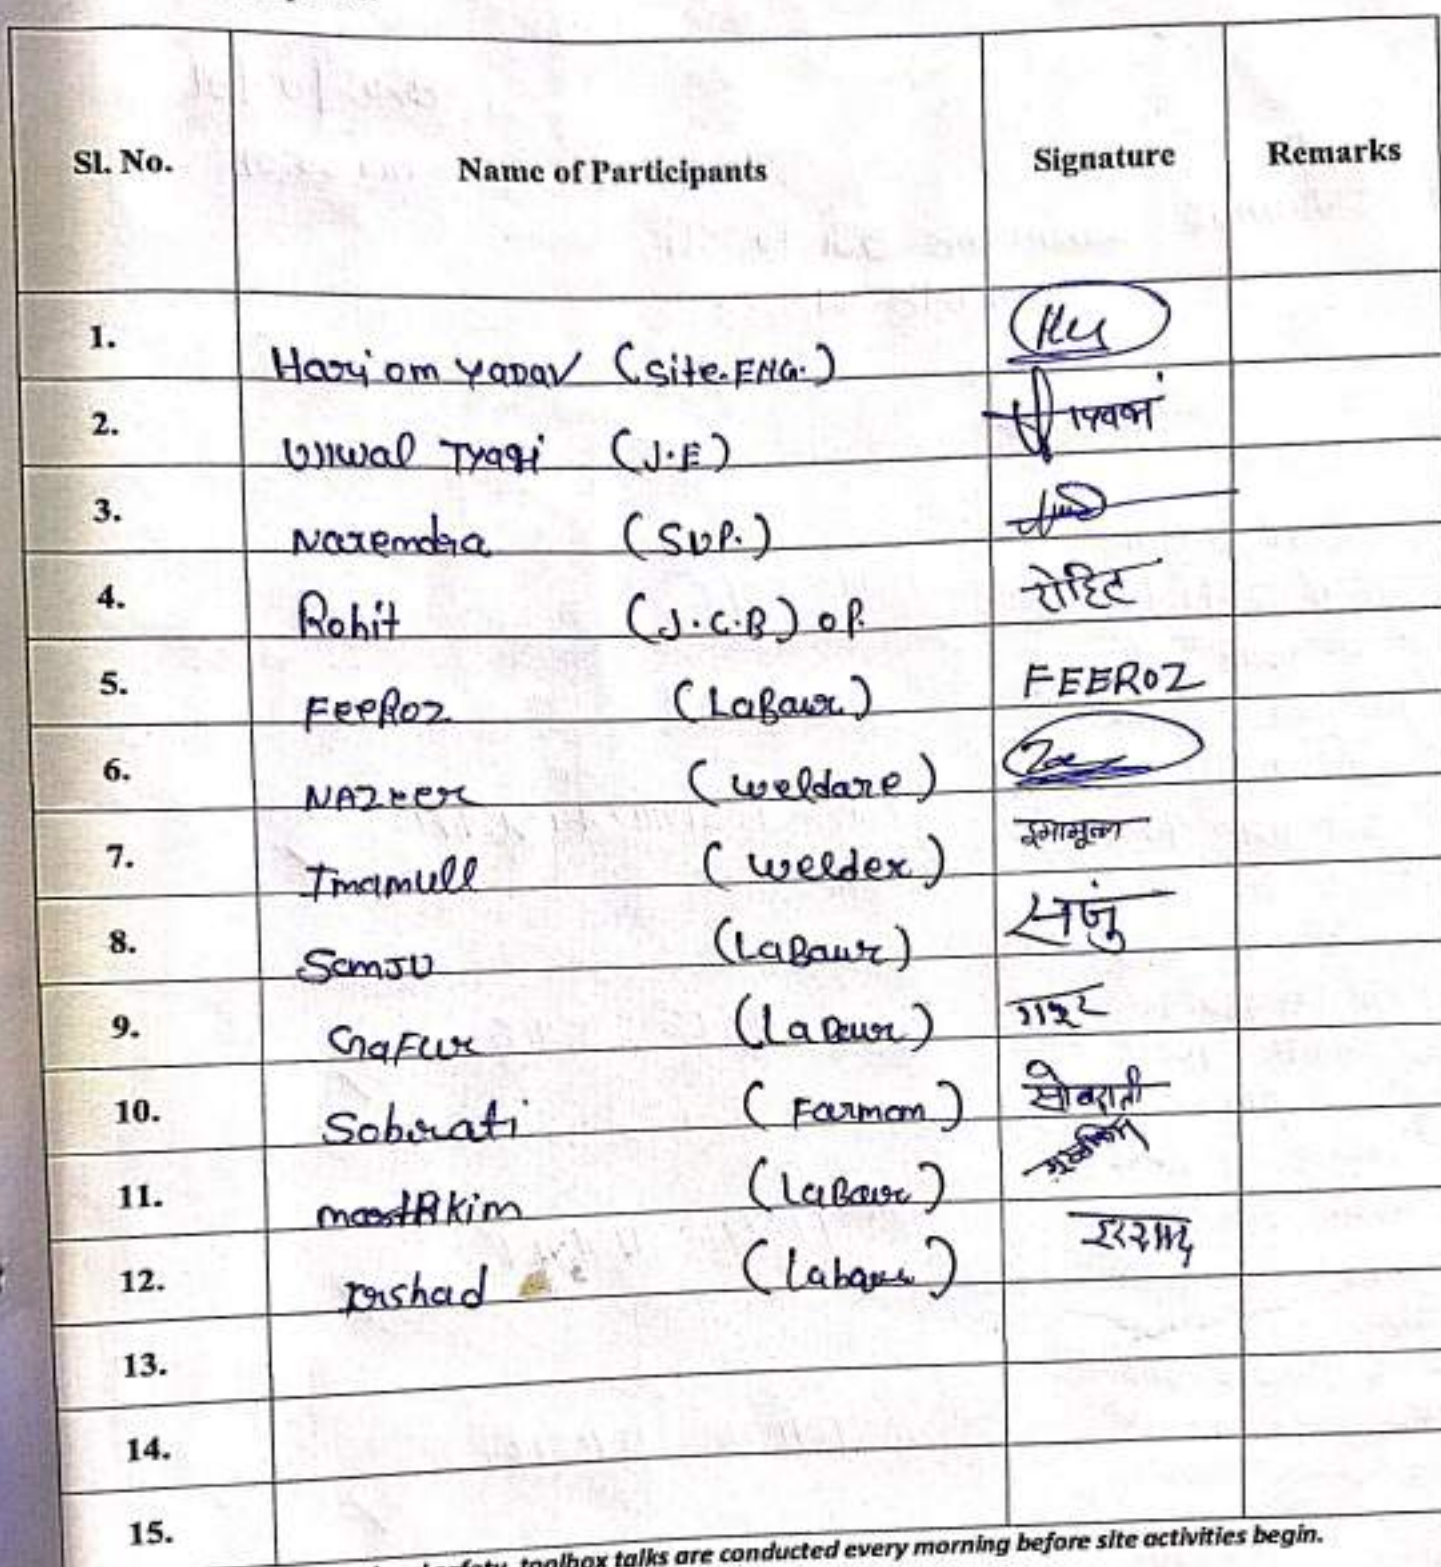 Sl. No. Name of Participants Signature Remarks
1. Hariom Yadav (Site. ENG.)
2. Ujjwal Tyagi (J.E)
3. Narendra (SUP.)
4. Rohit (J.C.B) OP. रोहित
5. FeeRoz (LaBaur) FEEROZ
6. NAZeer (weldare)
7. Imamull (welder)
8. (LaBaur)
9. GaFur (LaBaur)
10. Sobrati (Farmom) सोबराती
11. (LaBaur)
12. Irshad (Labaur)
13.
14.
15.
toolbox talks are conducted every morning before site activities begin.